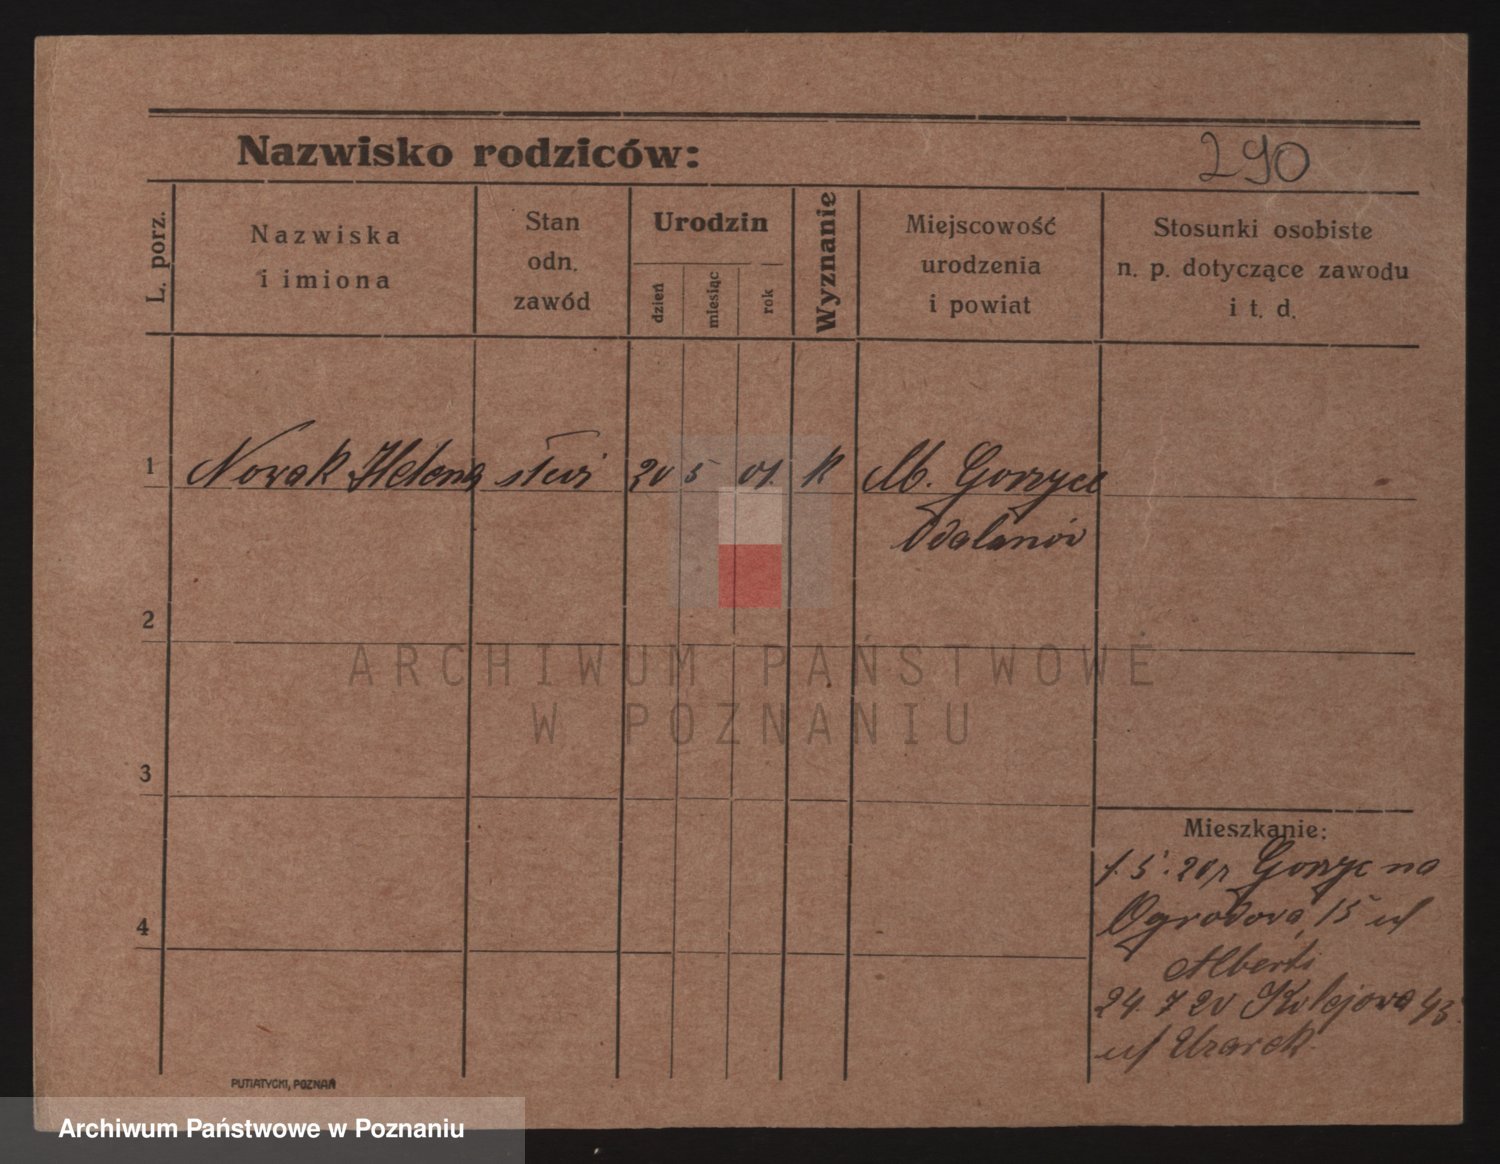 Nazwisko rodziców:
290
L. porz.
Nazwiska
i imiona
Stan
odn.
zawód
Urodzin
dzień
miesiąc
rok
Wyznanie
Miejscowość
urodzenia
i powiat
Stosunki osobiste
n. p. dotyczące zawodu
i t. d.
1 Nowak Helena 20 5 01. k M. Gorzyce
Odalanów
2
ARCHIWUM PAŃSTWOWE
W POZNANIU
3
Mieszkanie:
1.5.20 Gorzyc na
4
Ogrodova 15 u/
Alberti
24 7 20 Kolejowa 43
u/
PUTIATYCKI, POZNAŃ
Archiwum Państwowe w Poznaniu